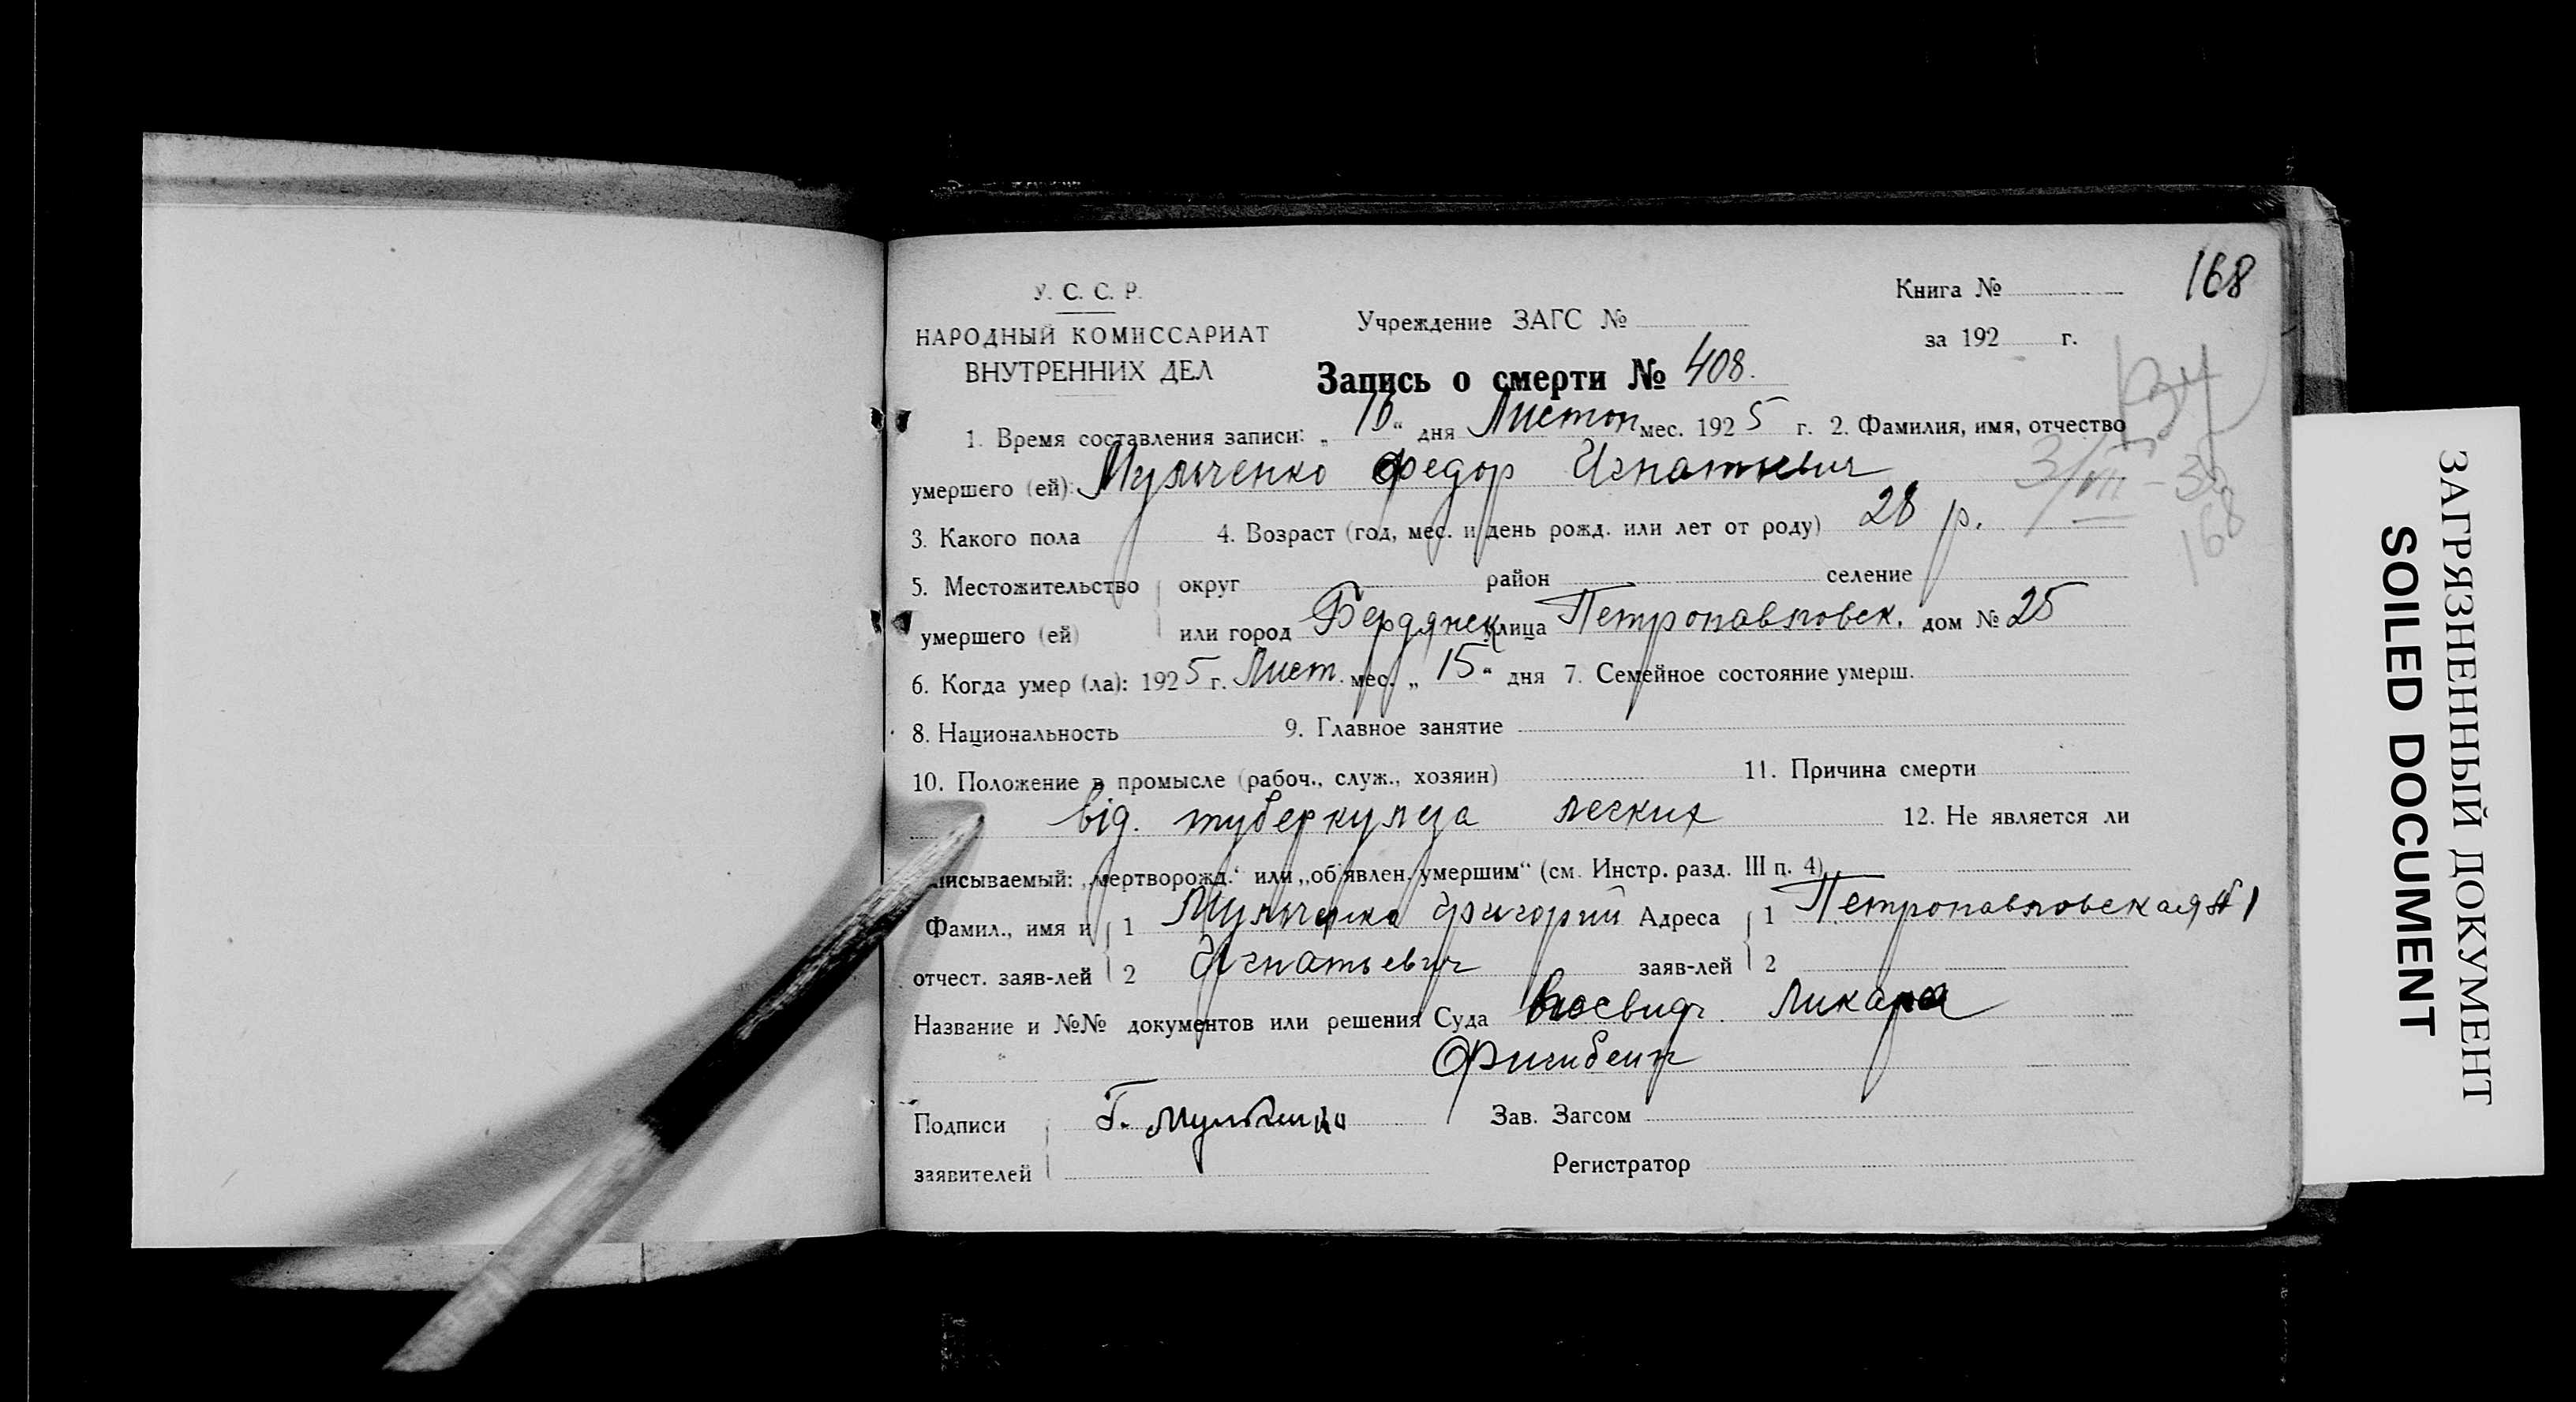 168
У. С. С. Р.
НАРОДНЫЙ КОМИССАРИАТ
ВНУТРЕННИХ ДЕЛ
Учреждение ЗАГС №
Книга №
за 192 г.
Запись о смерти № 408.
1. Время составления записи: „16“ дня Листоп мес. 1925 г. 2. Фамилия, имя, отчество
умершего (ей): Мульченко Федор Игнатьевич
3. Какого пола 4. Возраст (год, мес. и день рожд. или лет от роду) 28 р.
5. Местожительство округ район селение
умершего (ей) или город Бердянск улица Петропавловск. дом № 25
6. Когда умер (ла): 1925 г. Лист. мес. „15“ дня 7. Семейное состояние умерш.
8. Национальность 9. Главное занятие
10. Положение в промысле (рабоч., служ., хозяин) 11. Причина смерти
від. туберкулеза легких 12. Не является ли
писываемый: „мертворожд.“ или „об'явлен. умершим“ (см. Инстр. разд. III п. 4)
Фамил., имя и 1 Мульченко Григорий Адреса 1 Петропавловская
отчест. заяв-лей 2 Игнатьевич заяв-лей 2
Название и №№ документов или решения Суда Посвидч. Ликаря
Подписи Г. Мульченко Зав. Загсом
заявителей Регистратор
3/VII-
168
ЗАГРЯЗНЕННЫЙ ДОКУМЕНТ
SOILED DOCUMENT